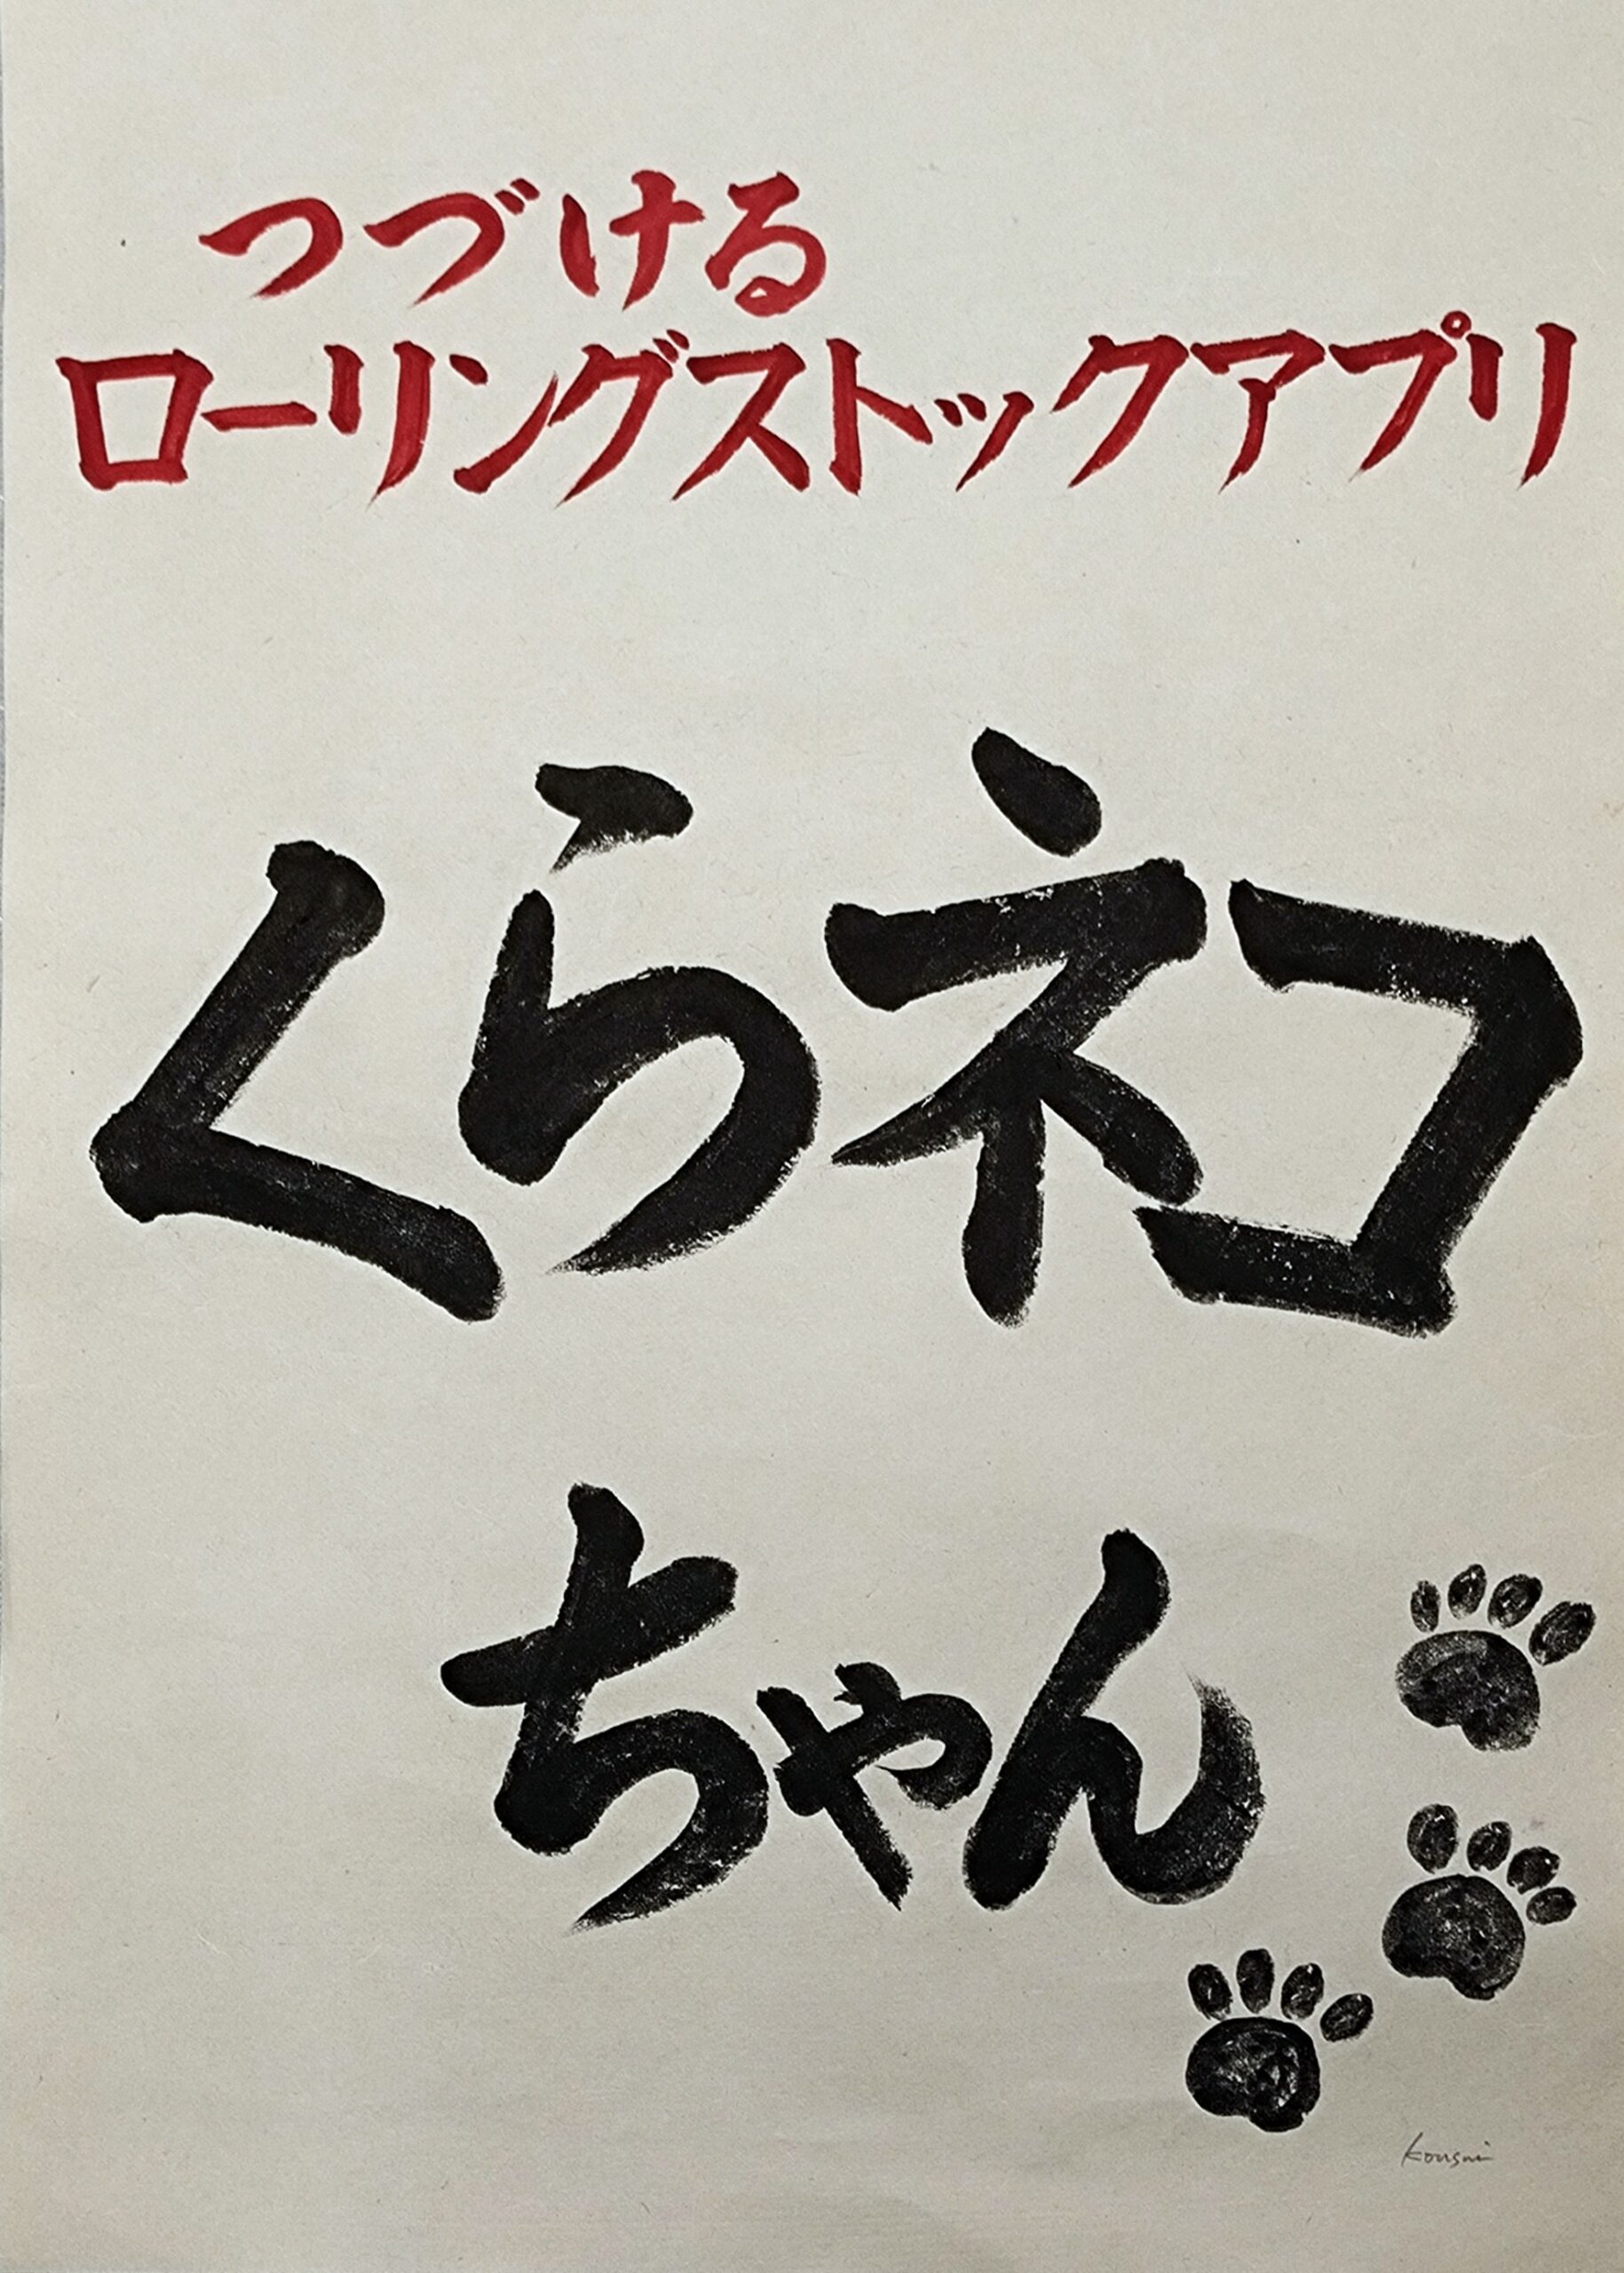 つづける
ローリングストックアプリ
くらネコ
ちゃん